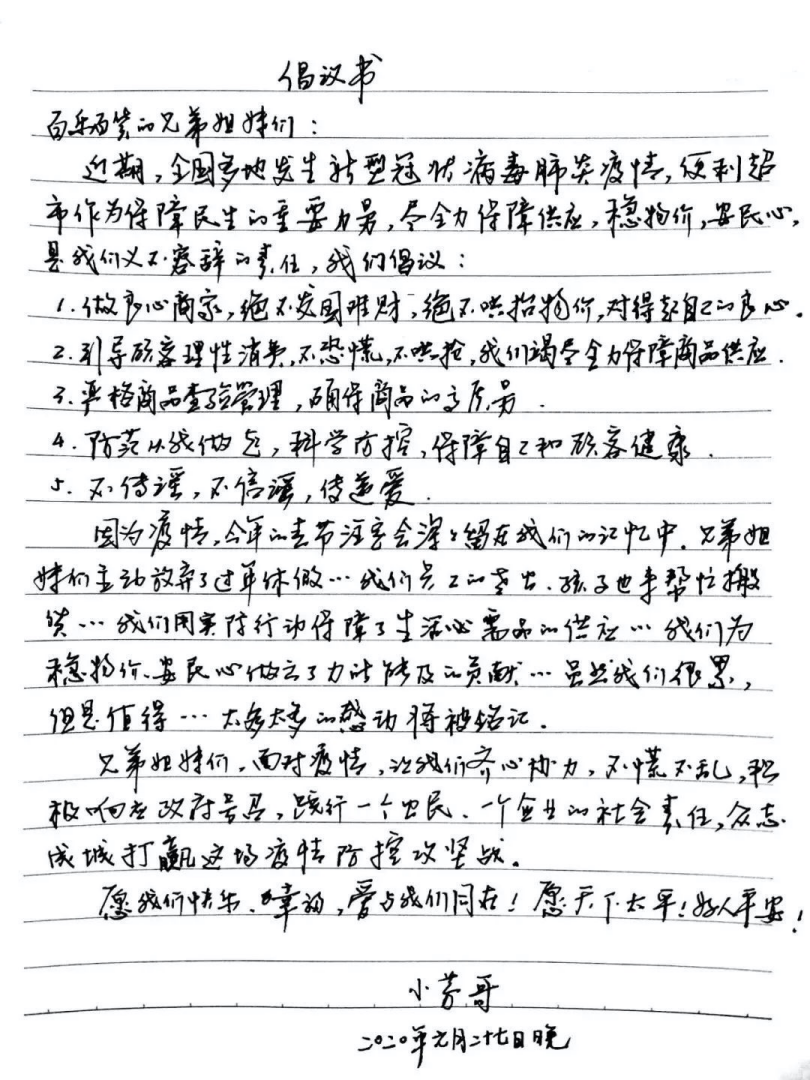 倡议书
百乐百惠的兄弟姐妹们：
近期，全国多地发生新型冠状病毒肺炎疫情，便利超
市作为保障民生的重要力量，尽全力保障供应，稳物价，安民心，
是我们义不容辞的责任，我们倡议：
1.做良心商家，绝不发国难财，绝不哄抬物价，对得起自己的良心。
2.引导顾客理性消费，不恐慌，不哄抢，我们竭尽全力保障商品供应.
3.严格商品查验管理，确保商品的高质量.
4.防范从我做起，科学防控，保障自己和顾客健康.
5.不传谣，不信谣，传递爱.
因为疫情，今年的春节注定会深深留在我们的记忆中.兄弟姐
妹们主动放弃了过年休假…我们员工的老公、孩子也来帮忙搬
货…我们用实际行动保障了生活必需品的供应…我们为
稳物价、安民心做出了力所能及的贡献…虽然我们很累，
但是值得…太多太多的感动将被铭记.
兄弟姐妹们，面对疫情，让我们齐心协力，不慌不乱，积
极响应政府号召，践行一个公民、一个企业的社会责任，众志
成城打赢这场疫情防控攻坚战。
愿我们快乐、幸福，爱与我们同在！愿天下太平！好人平安！
小芳哥
二〇二〇年元月二十七日晚